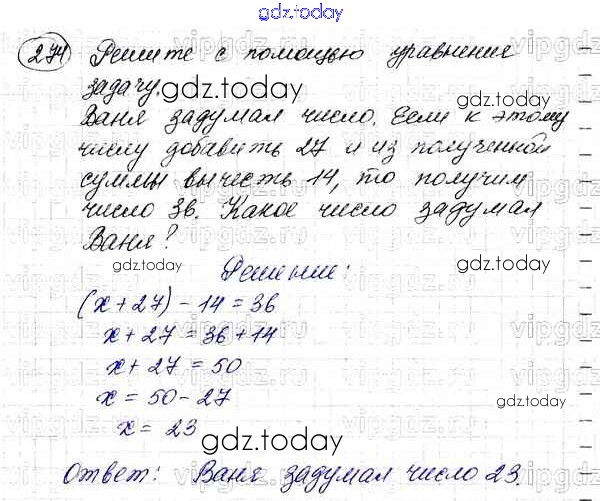 gdz.today
274 Решите с помощью уравнения
задачу. gdz.today
Ваня задумал число. Если к этому
числу добавить 27 и из полученной
суммы вычесть 14, то получим
число 36. Какое число задумал
Ваня?
gdz.today
gdz.today
gdz.today
Решение:
(x + 27) - 14 = 36
x + 27 = 36 + 14
x + 27 = 50
x = 50 - 27
x = 23
gdz.today
Ответ: Ваня задумал число 23.